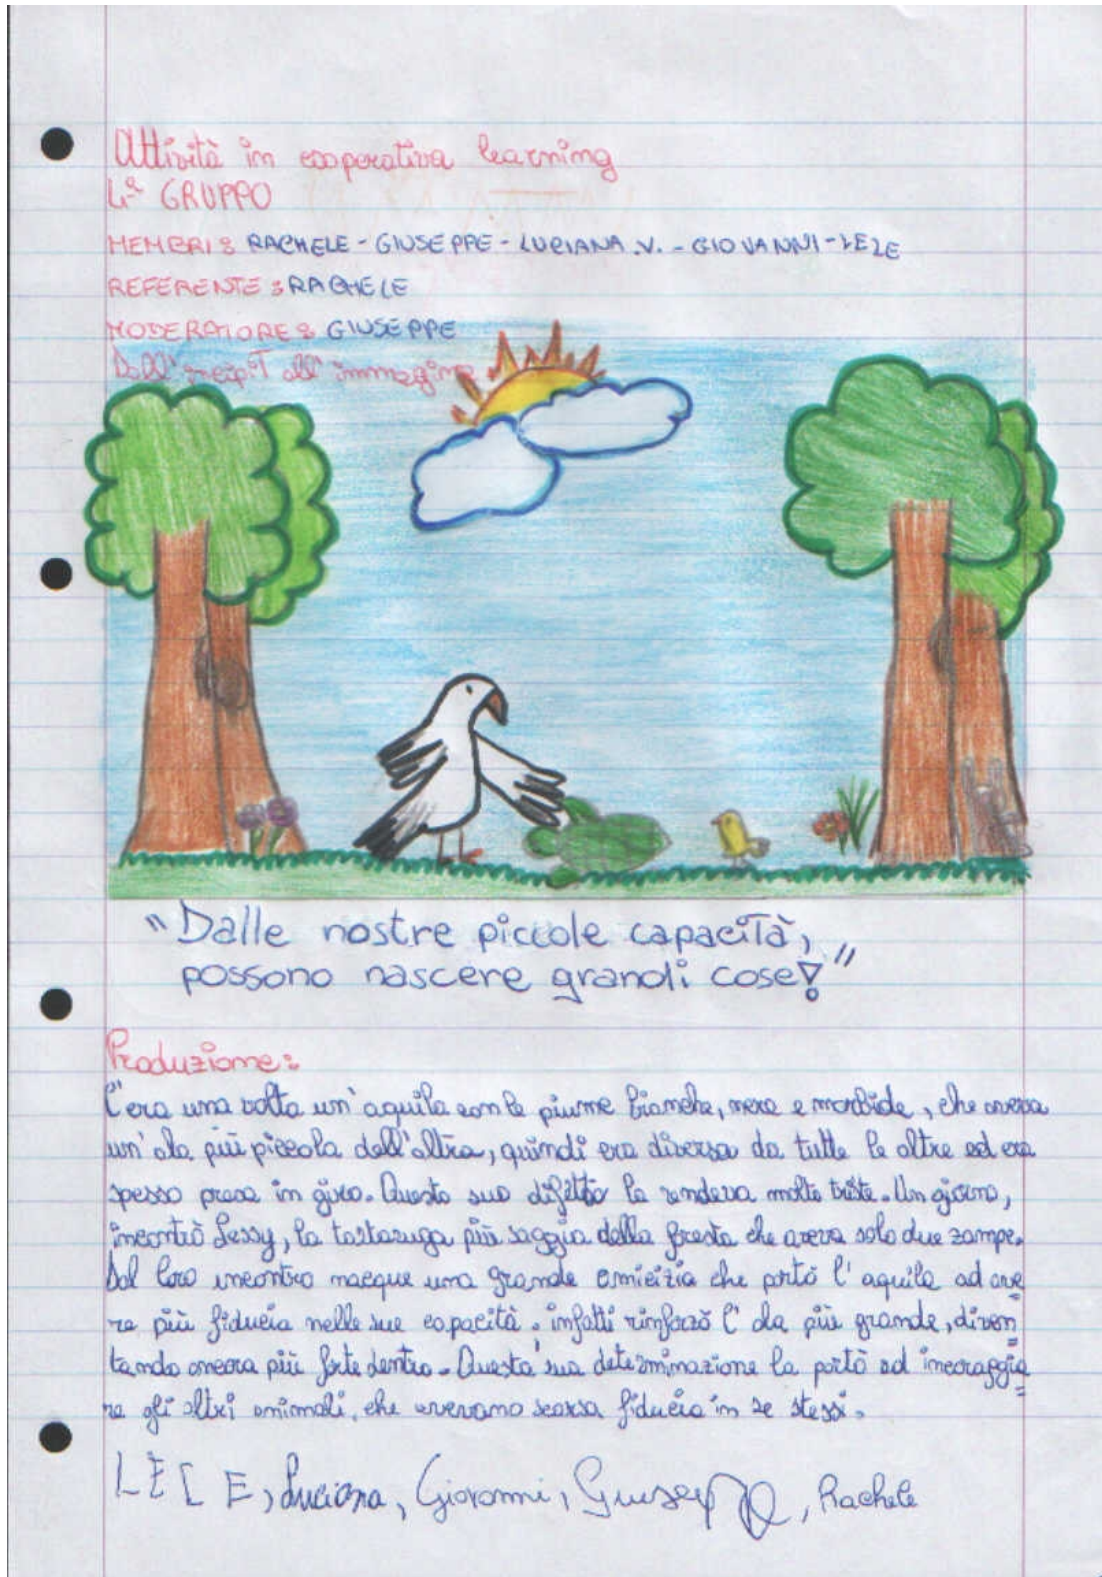 Attività in cooperativa learning
4º GRUPPO
MEMBRI: RACHELE - GIUSEPPE - LUCIANA.V. - GIOVANNI - LELE
REFERENTE: RACHELE
MODERATORE: GIUSEPPE
Dall'incipit all'immagine
"Dalle nostre piccole capacità,
possono nascere grandi cose!"
Produzione:
C'era una volta un'aquila con le piume bianche, nere e morbide, che aveva
un'ala più piccola dell'altra, quindi era diversa da tutte le altre ed era
spesso presa in giro. Questo suo difetto la rendeva molto triste. Un giorno,
incontrò Lessy, la tartaruga più saggia della foresta che aveva solo due zampe.
Dal loro incontro nacque una grande amicizia che portò l'aquila ad ave
re più fiducia nelle sue capacità, infatti rinforzò l'ala più grande, diven
tando ancora più forte dentro. Questa sua determinazione la portò ad incoraggia
re gli altri animali, che avevano scarsa fiducia in se stessi.
LELE, Luciana, Giovanni, Giuseppe, Rachele